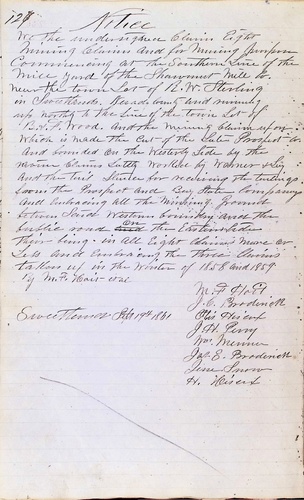 127
Notice
We the undersigned Claim Eight
Mining Claims and for Mining Purposes
Commencing at the Southern Line of the
Mill Yard of the Shawmut Mill Co.
Near the town Lot of R. W. Sterling
in Sweetland. Nevada County and running
up northly to the Line of the town Lot of
Wood. And the Mining Claim upon
Which is made the Cut of the Prospect Co
And bounded On the Westerly Side by the
Claims Lately Worked by Warner &
And the Tail Sluice for receiving the tailings
from the Prospect and Bay State Company
And Embracing All the Mining Ground
between Said Western boundary and the
public road On the Eastern Side
their being in all Eight Claims more or
Less and Embracing the three Claims
taken up in the Winter of 1858 and 1859
by M. F. Hoit et al
Sweetland Sept 19th 1861
M. F. Hoit
J. C. Broderick
Otis Hiscox
J. H. Perry
Wm. Menner
Jas. E. Broderick
Jene Snow
H. Hiscox